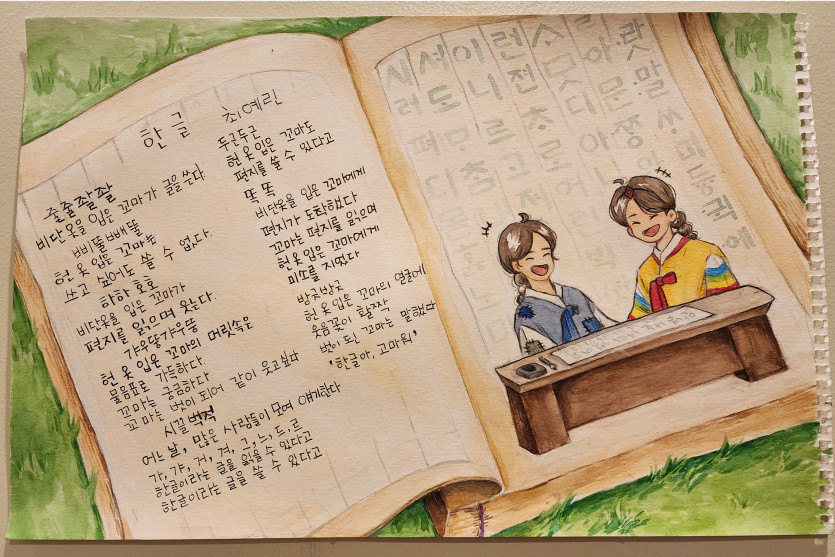 한글 최예린
줄줄 좔좔
비단옷을 입은 꼬마가 글을 쓴다
삐뚤빼뚤
헌 옷 입은 꼬마는
쓰고 싶어도 쓸 수 없다.
하하 호호
비단옷을 입은 꼬마가
편지를 읽으며 웃는다.
갸우뚱갸우뚱
헌 옷 입은 꼬마의 머릿속은
물음표로 가득하다.
꼬마는 궁금하다
꼬마는 벗이 되어 같이 웃고싶다
시끌벅적
어느 날, 많은 사람들이 모여 얘기한다
가, 갸, 거, 겨, 그, 느, 드, 르
한글이라는 글을 읽을 수 있다고
한글이라는 글을 쓸 수 있다고
두근두근
헌 옷 입은 꼬마도
편지를 쓸 수 있다고
똑 똑
비단옷을 입은 꼬마에게
편지가 도착했다
꼬마는 편지를 읽으며
헌 옷 입은 꼬마에게
미소를 지었다
방긋방긋
헌 옷 입은 꼬마의 얼굴에
웃음꽃이 활짝
벗이 된 꼬마는 말했다
'한글아, 고마워'
랏말쓰
아문쫑
스뭇디
런전초로
이니르
셔도
시러펴디